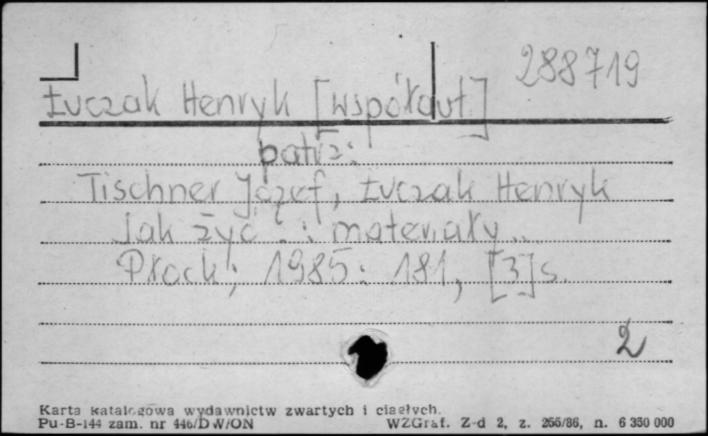 288719
Łuczak Henryk [współaut]
patrz:
Tischner Józef, Łuczak Henryk
Jak żyć? : materiały...
Płock; 1985: 181, [3] s.
2
Karta katalogowa wydawnictw zwartych i ciągłych.
Pu-B-144 zam. nr 446/DW/ON WZGraf. Z-d 2, z. 266/86, n. 6 350 000